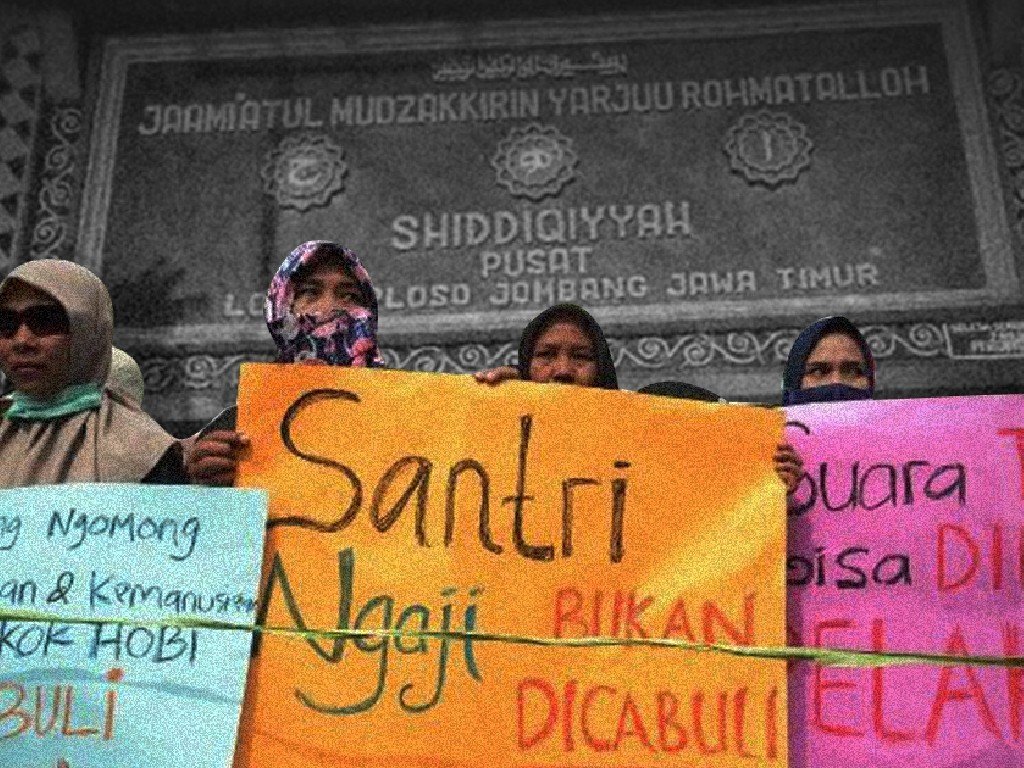 JAAMI'ATUL MUDZAKKIRIN YARJUU ROHMATALLOH
SHIDDIQIYYAH
PUSAT
PLOSO JOMBANG JAWA TIMUR
Ngomong
& Kemanusiaan
KOK HOBI
BULI
Santri
Ngaji BUKAN
DICABULI
Suara
bisa